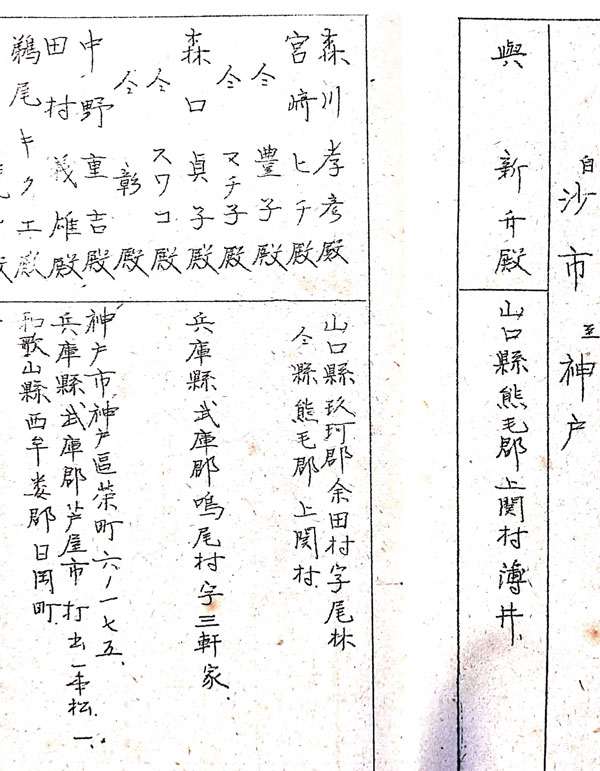 自沙市至神戸
與 新介殿 山口縣熊毛郡上関村薄井
森川孝彦殿 山口縣玖珂郡余田村字尾林
宮﨑ヒチ殿 仝縣熊毛郡上関村
仝 豊子殿
仝 マチ子殿
森口貞子殿 兵庫縣武庫郡鳴尾村字三軒家
仝 スワコ殿
仝 彰殿
中野重吉殿 神戸市神戸區栄町六ノ一七五
田村義雄殿 兵庫縣武庫郡芦屋市打出一本松一
鵜尾キクエ殿 和歌山縣西牟婁郡日國町
殿